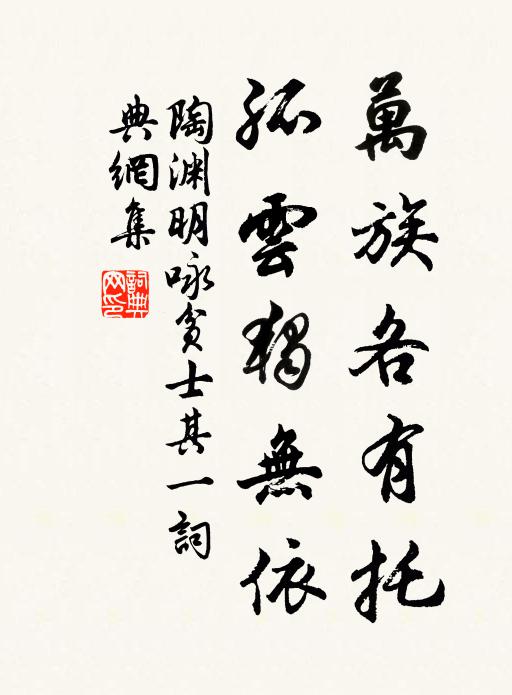 萬族各有托
孤雲獨無依
陶渊明咏貧士其一詞
典網集
詞典网印